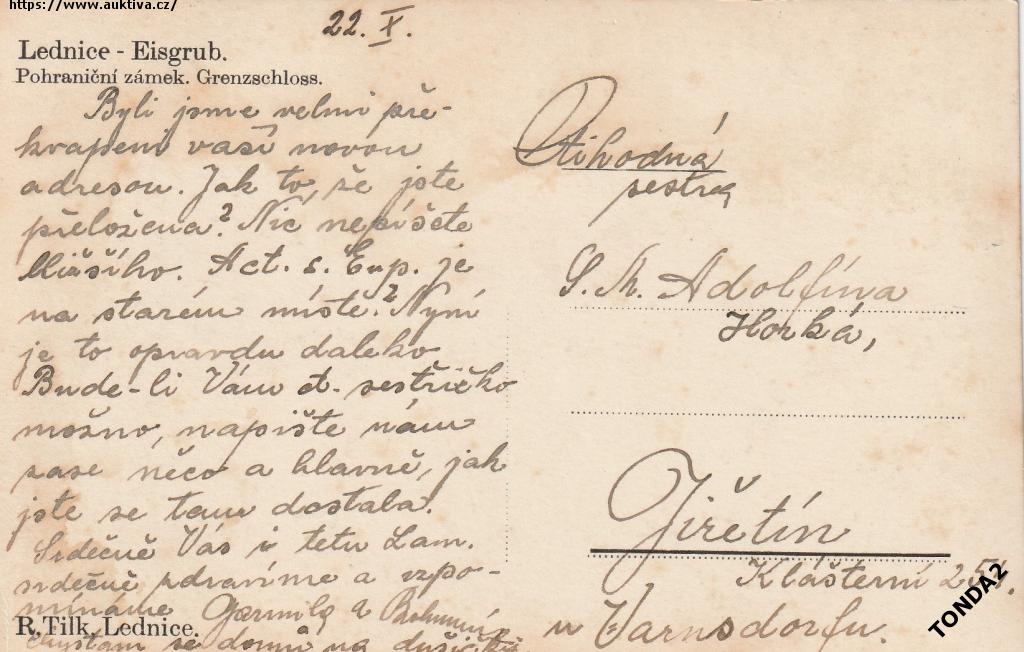 https://www.auktiva.cz/
22. X.
Lednice - Eisgrub.
Pohraniční zámek. Grenzschloss.
Byli jsme velmi pře-
kvapeni vaší novou
adresou. Jak to, že jste
přeložena? Nic nepíšete
bližšího. Act. s. Eup. je
na starém místě? Nyní
je to opravdu daleko
Bude-li Vám ct. sestřičko
možno, napište nám
zase něco a hlavně, jak
jste se tam dostala.
Srdečně Vás i tetu Lam.
srdečně zdravíme a vzpo-
mínáme Jarmila a Bohumír
R. Tilk, Lednice.
chystám se domů na dušičky
Ctihodná
sestra
S. M. Adolfína
Horká,
Jiřetín
Klášterní 251.
u Varnsdorfu.
TONDA2